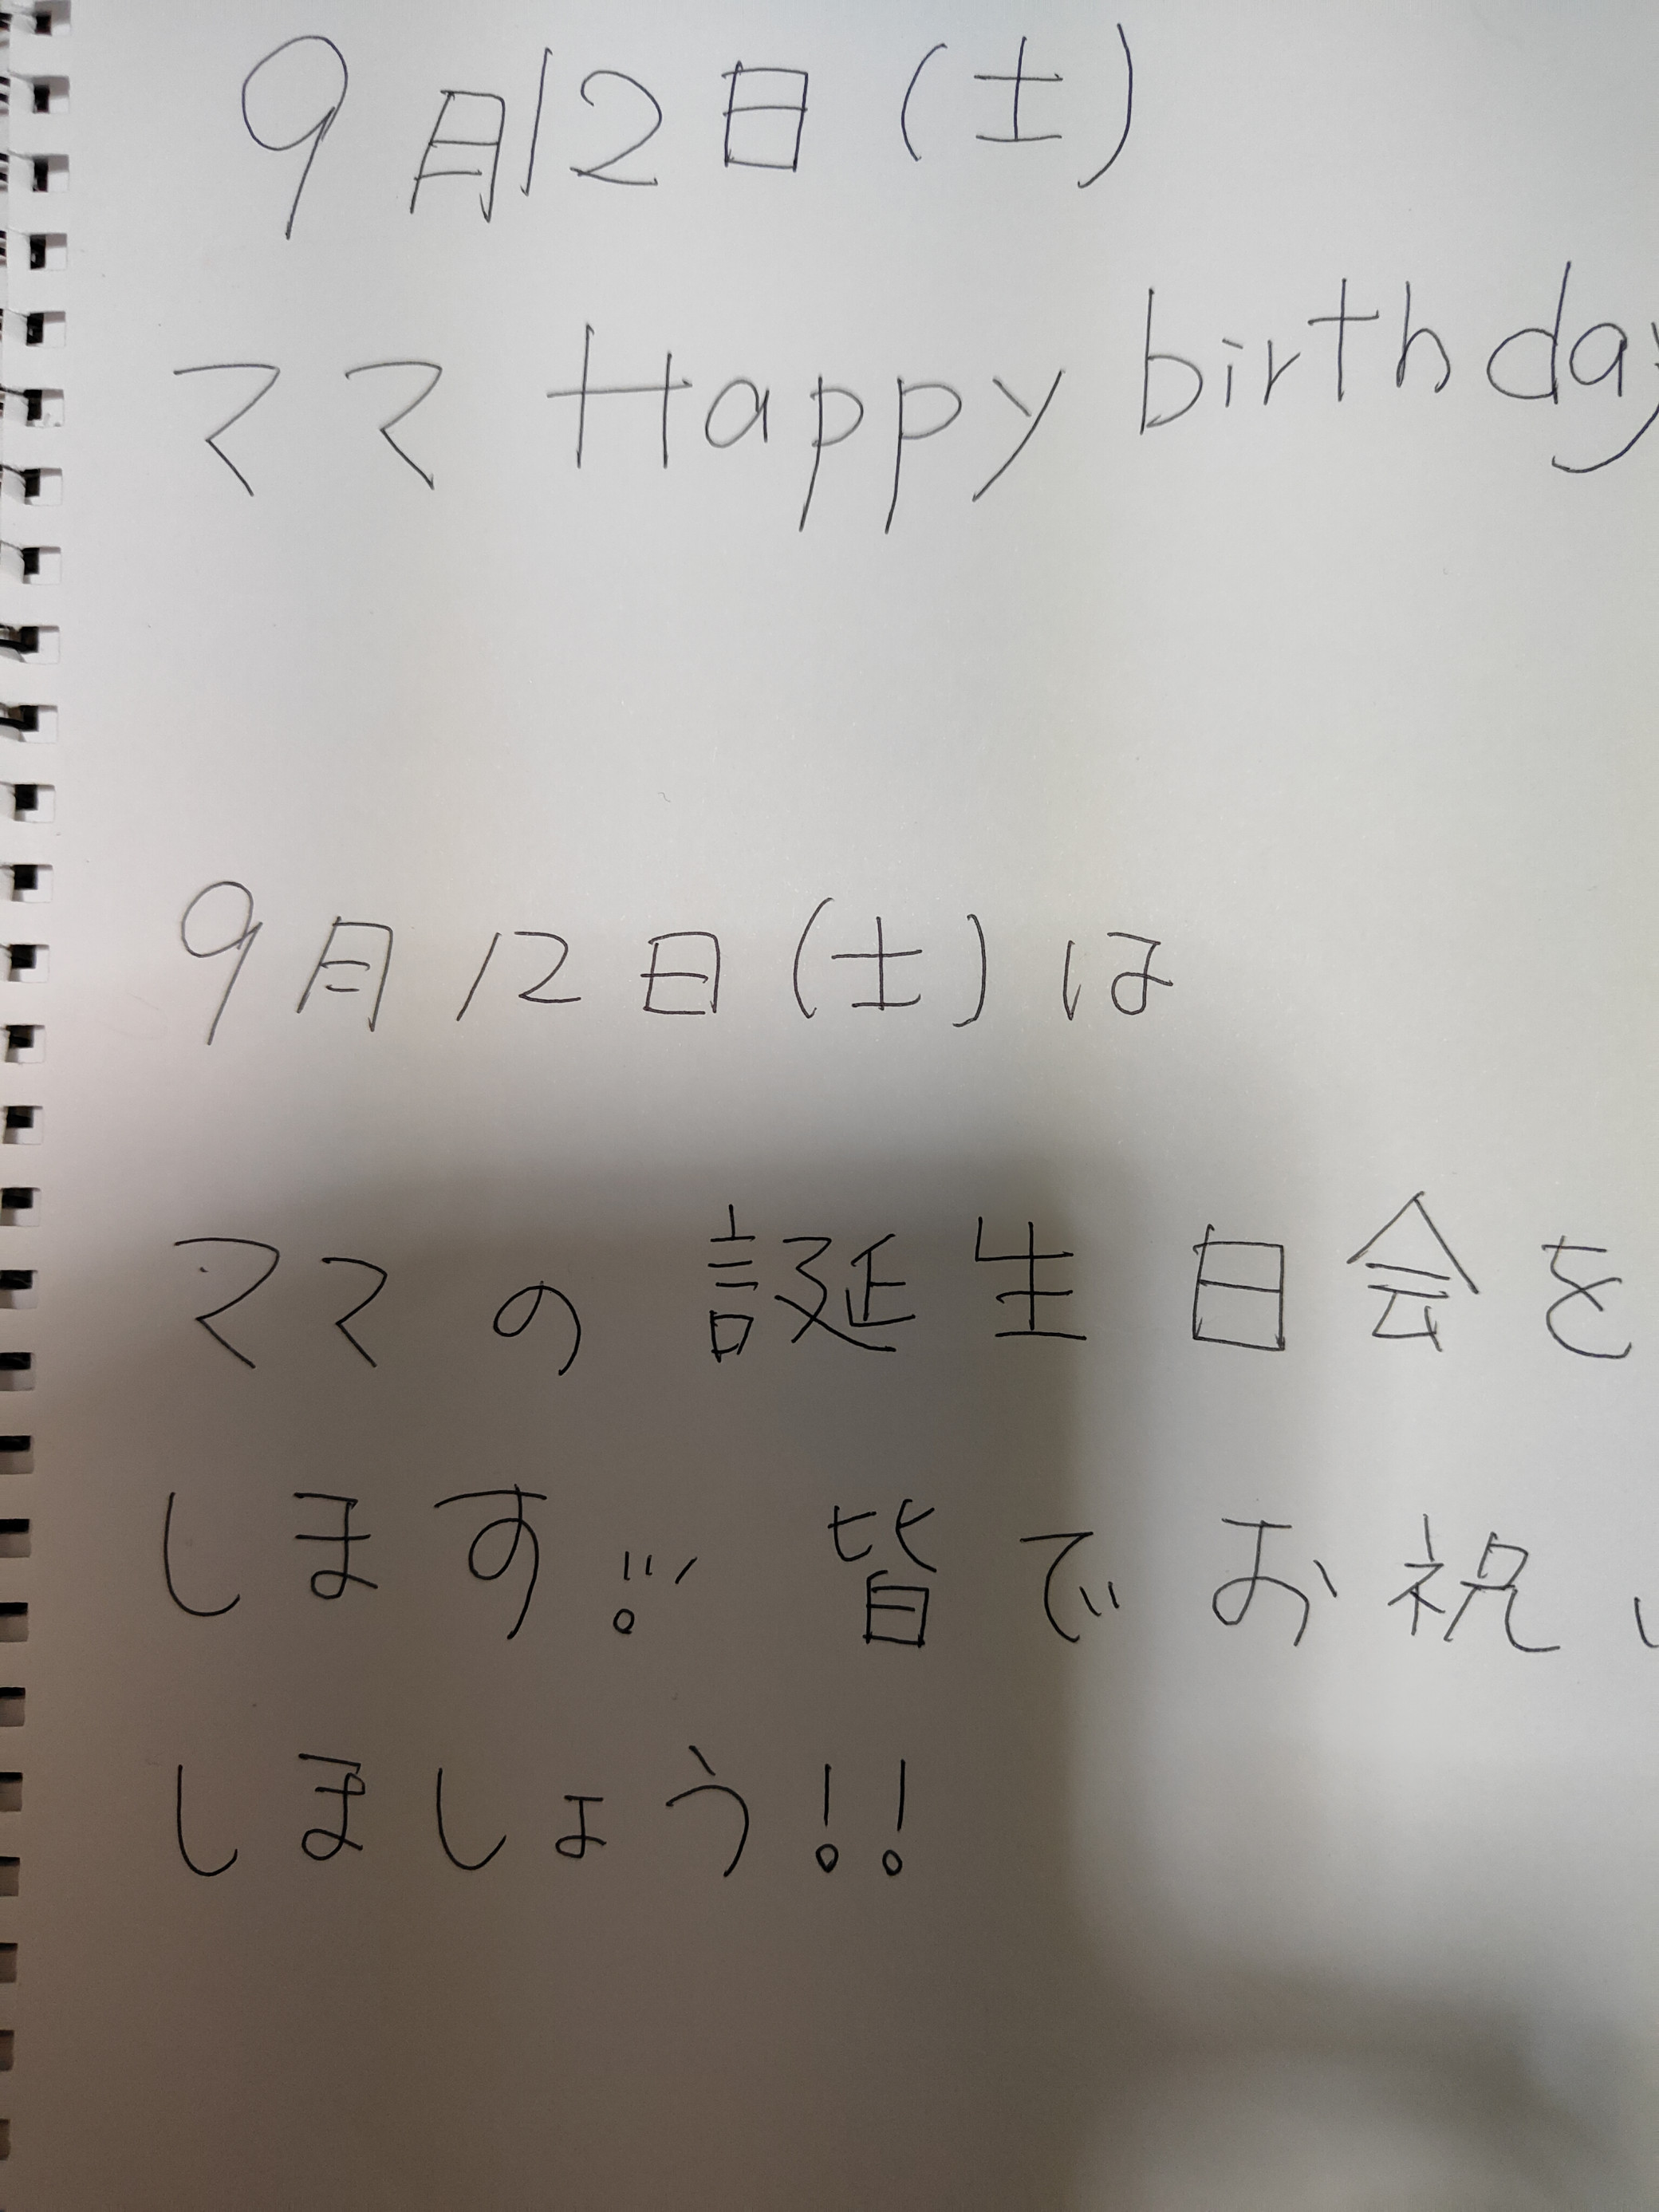 9月12日(土)
ママ Happy birthday
9月12日(土)は
ママの誕生日会を
します!!! 皆でお祝い
しましょう!!